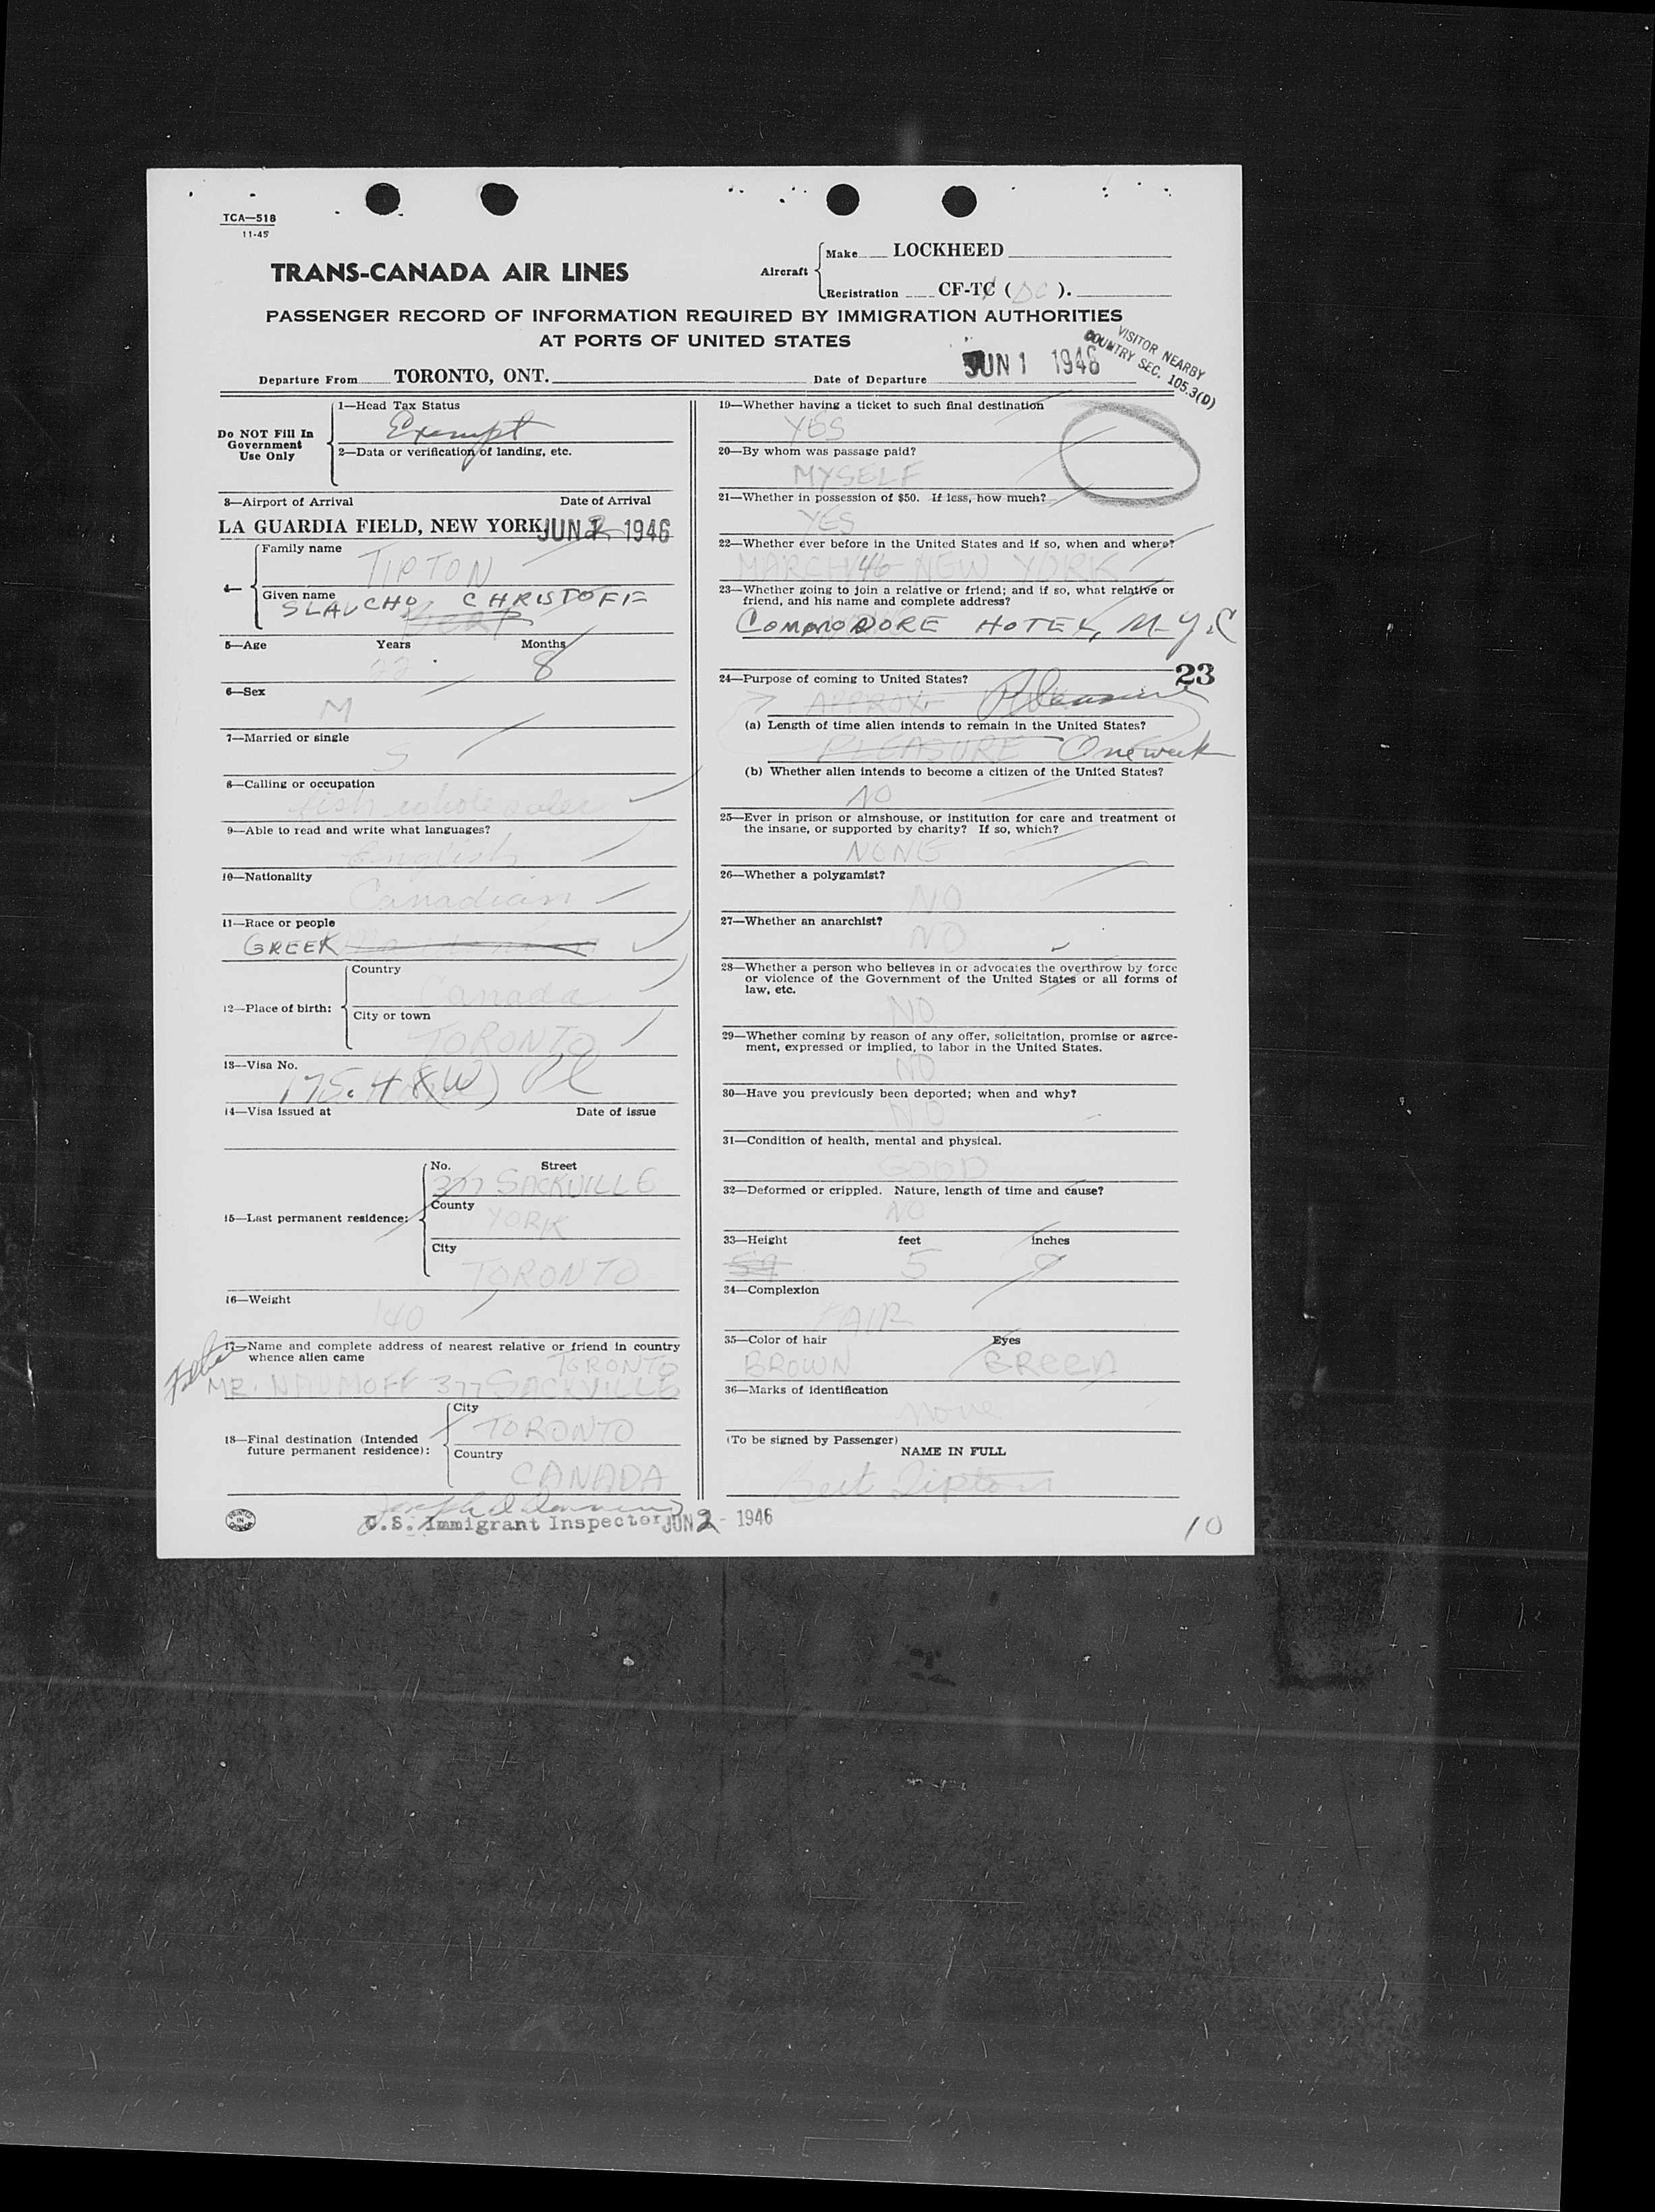 TCA—518
11-45
TRANS-CANADA AIR LINES
Aircraft
Make LOCKHEED
Registration CF-TC ( DC ).
PASSENGER RECORD OF INFORMATION REQUIRED BY IMMIGRATION AUTHORITIES
AT PORTS OF UNITED STATES
VISITOR NEARBY
COUNTRY SEC. 105.3(D)
Departure From TORONTO, ONT. Date of Departure JUN 1 1946
Do NOT Fill In
Government
Use Only
1—Head Tax Status
Exempt
2—Data or verification of landing, etc.
3—Airport of Arrival Date of Arrival
LA GUARDIA FIELD, NEW YORK JUN 2 1946
4—
Family name
TIPTON
Given name
SLAUCHO CHRISTOFF
5—Age Years Months
22 8
6—Sex
M
7—Married or single
S
8—Calling or occupation
fish wholesaler
9—Able to read and write what languages?
English
10—Nationality
Canadian
11—Race or people
GREEK
12—Place of birth:
Country
Canada
City or town
TORONTO
13—Visa No.
175.48(W)
14—Visa issued at Date of issue
15—Last permanent residence:
No. Street
377 SACKVILLE
County
YORK
City
TORONTO
16—Weight
140
17—Name and complete address of nearest relative or friend in country
whence alien came
TORONTO
Father
MR. NAUMOFF 377 SACKVILLE
18—Final destination (Intended
future permanent residence):
City
TORONTO
Country
CANADA
U.S. Immigrant Inspector JUN 2 - 1946
19—Whether having a ticket to such final destination
YES
20—By whom was passage paid?
MYSELF
21—Whether in possession of $50. If less, how much?
YES
22—Whether ever before in the United States and if so, when and where?
MARCH/46 NEW YORK
23—Whether going to join a relative or friend; and if so, what relative or
friend, and his name and complete address?
COMMODORE HOTEL, N.Y.C
23
24—Purpose of coming to United States?
APPROX Pleasure
(a) Length of time alien intends to remain in the United States?
PLEASURE One week
(b) Whether alien intends to become a citizen of the United States?
NO
25—Ever in prison or almshouse, or institution for care and treatment of
the insane, or supported by charity? If so, which?
NONE
26—Whether a polygamist?
NO
27—Whether an anarchist?
NO
28—Whether a person who believes in or advocates the overthrow by force
or violence of the Government of the United States or all forms of
law, etc.
NO
29—Whether coming by reason of any offer, solicitation, promise or agree-
ment, expressed or implied, to labor in the United States.
NO
30—Have you previously been deported; when and why?
NO
31—Condition of health, mental and physical.
GOOD
32—Deformed or crippled. Nature, length of time and cause?
NO
33—Height feet inches
59 5 9
34—Complexion
FAIR
35—Color of hair Eyes
BROWN GREEN
36—Marks of identification
none
(To be signed by Passenger)
NAME IN FULL
Bert Tipton
10